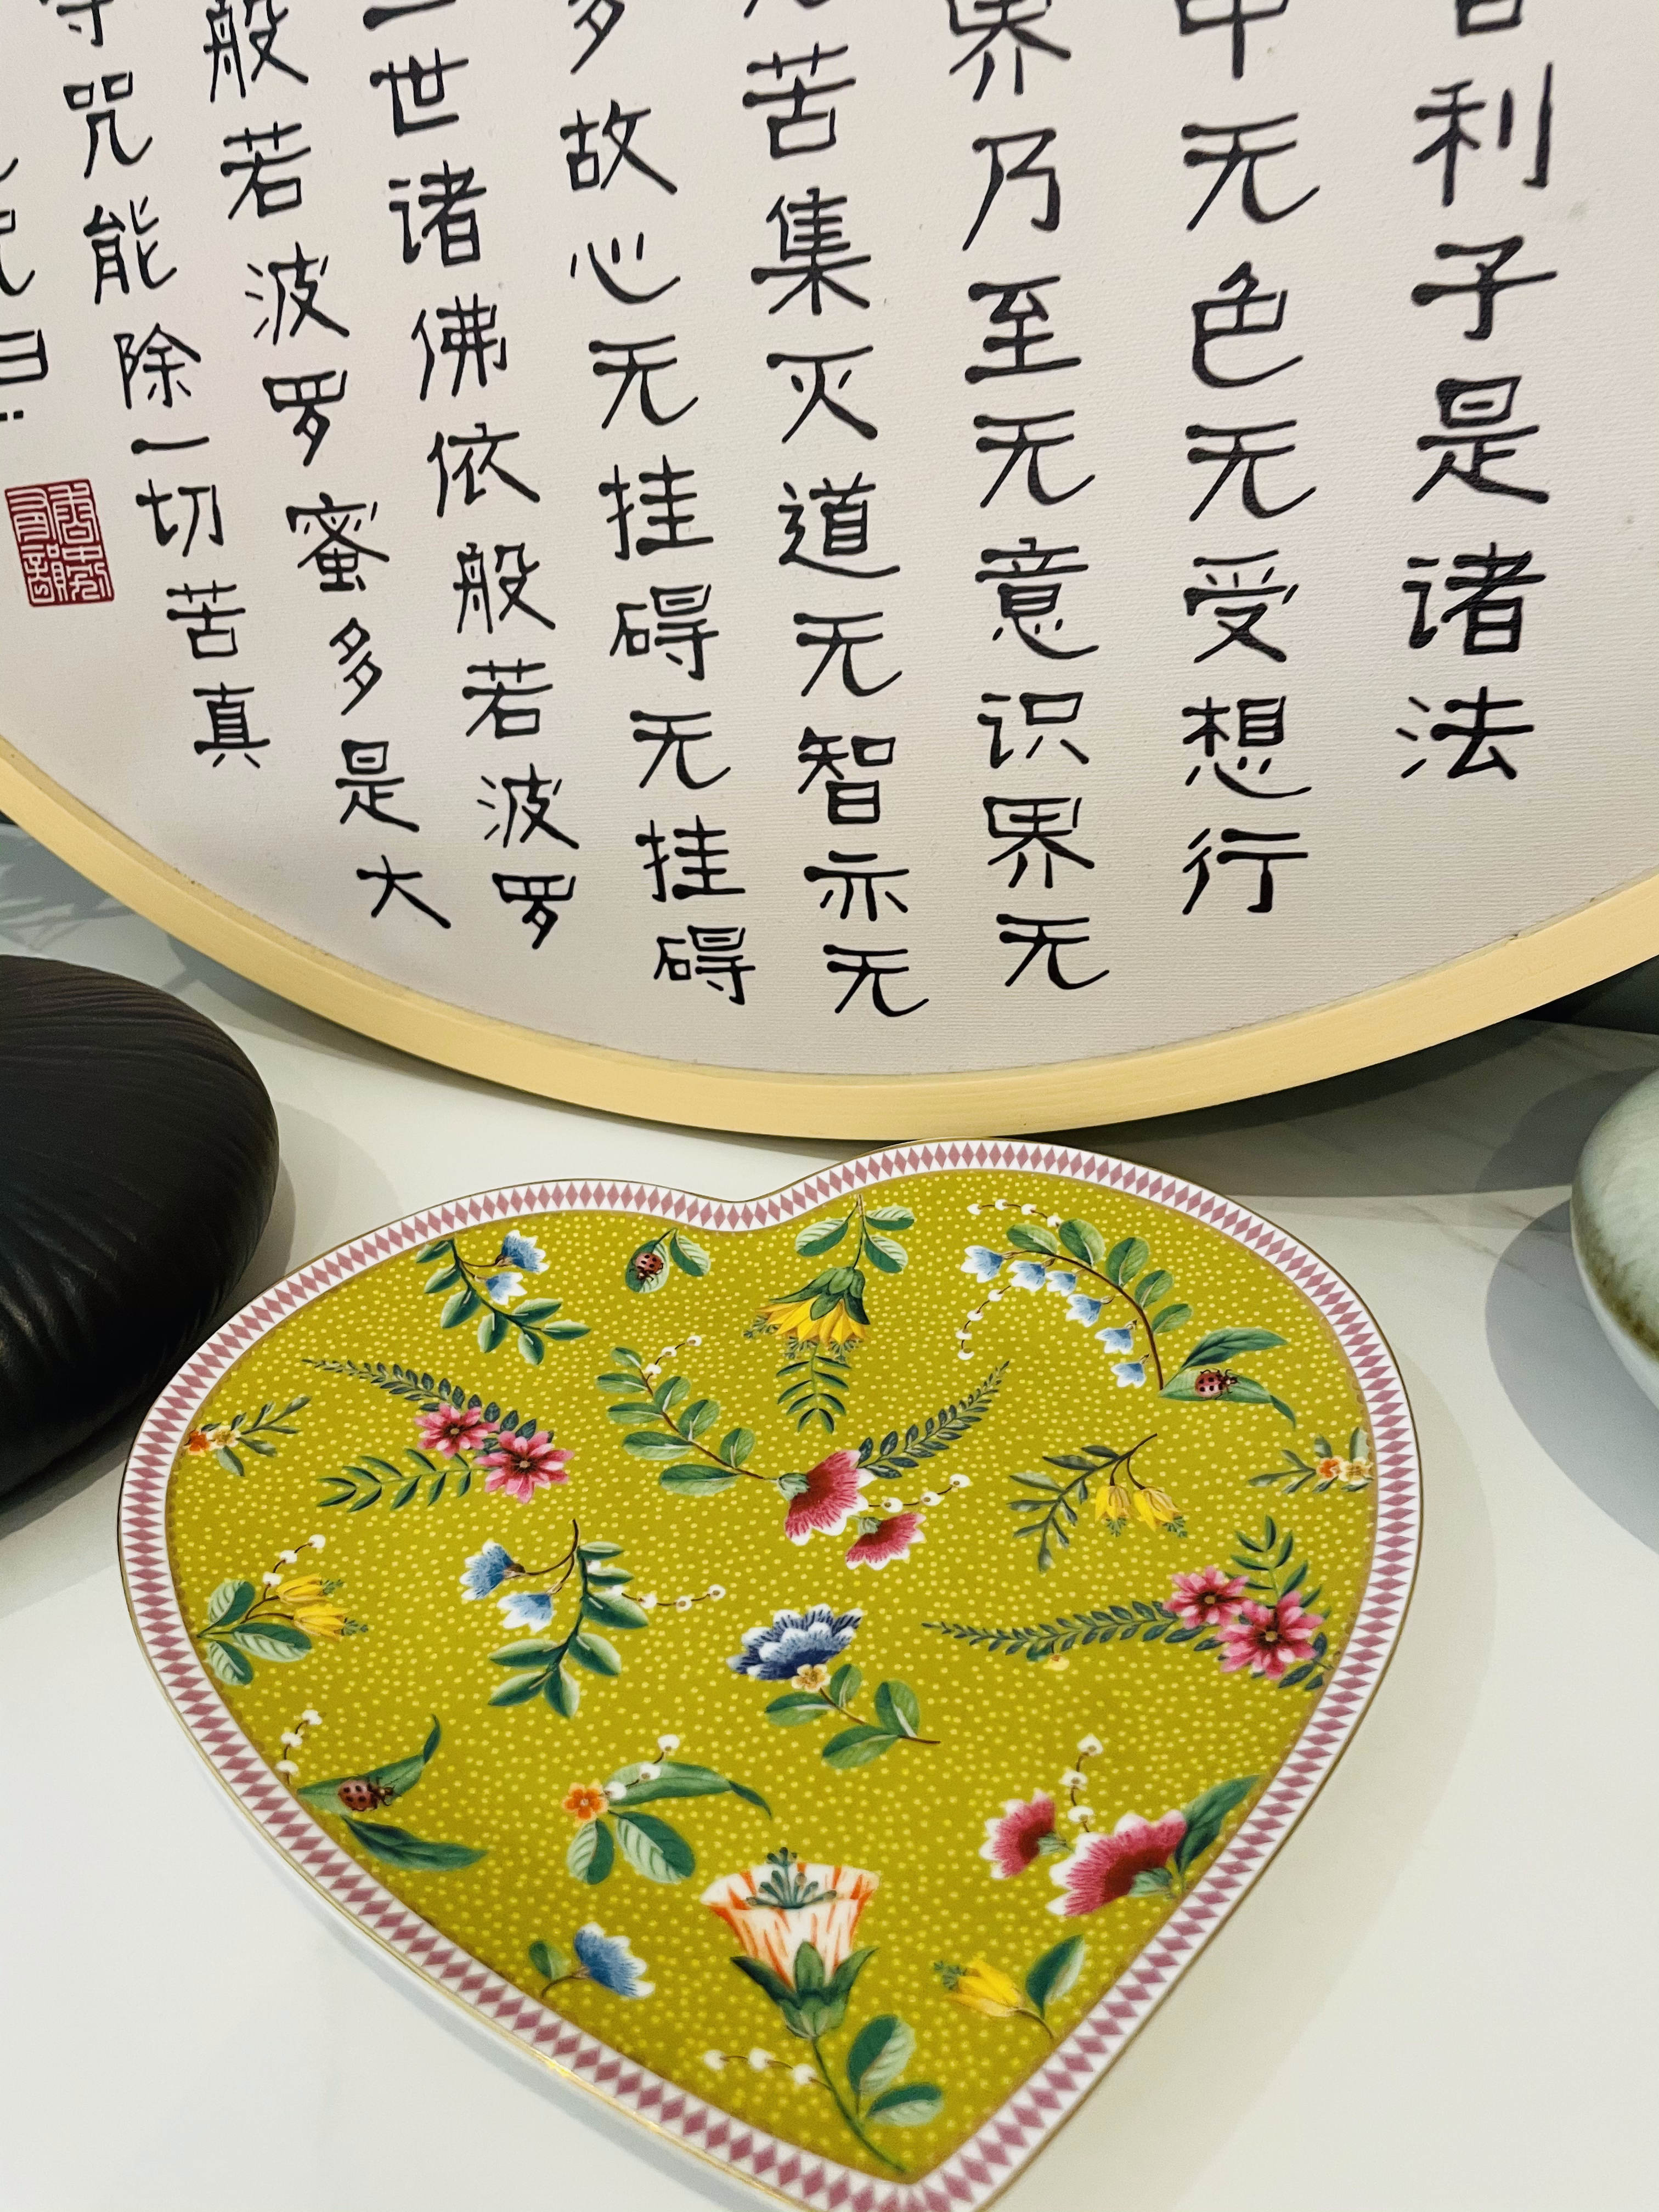 利子是诸法
中无色无受想行
界乃至无意识界无
苦集灭道无智亦无
多故心无挂碍无挂碍
世诸佛依般若波罗
般若波罗蜜多是大
咒能除一切苦真
曰